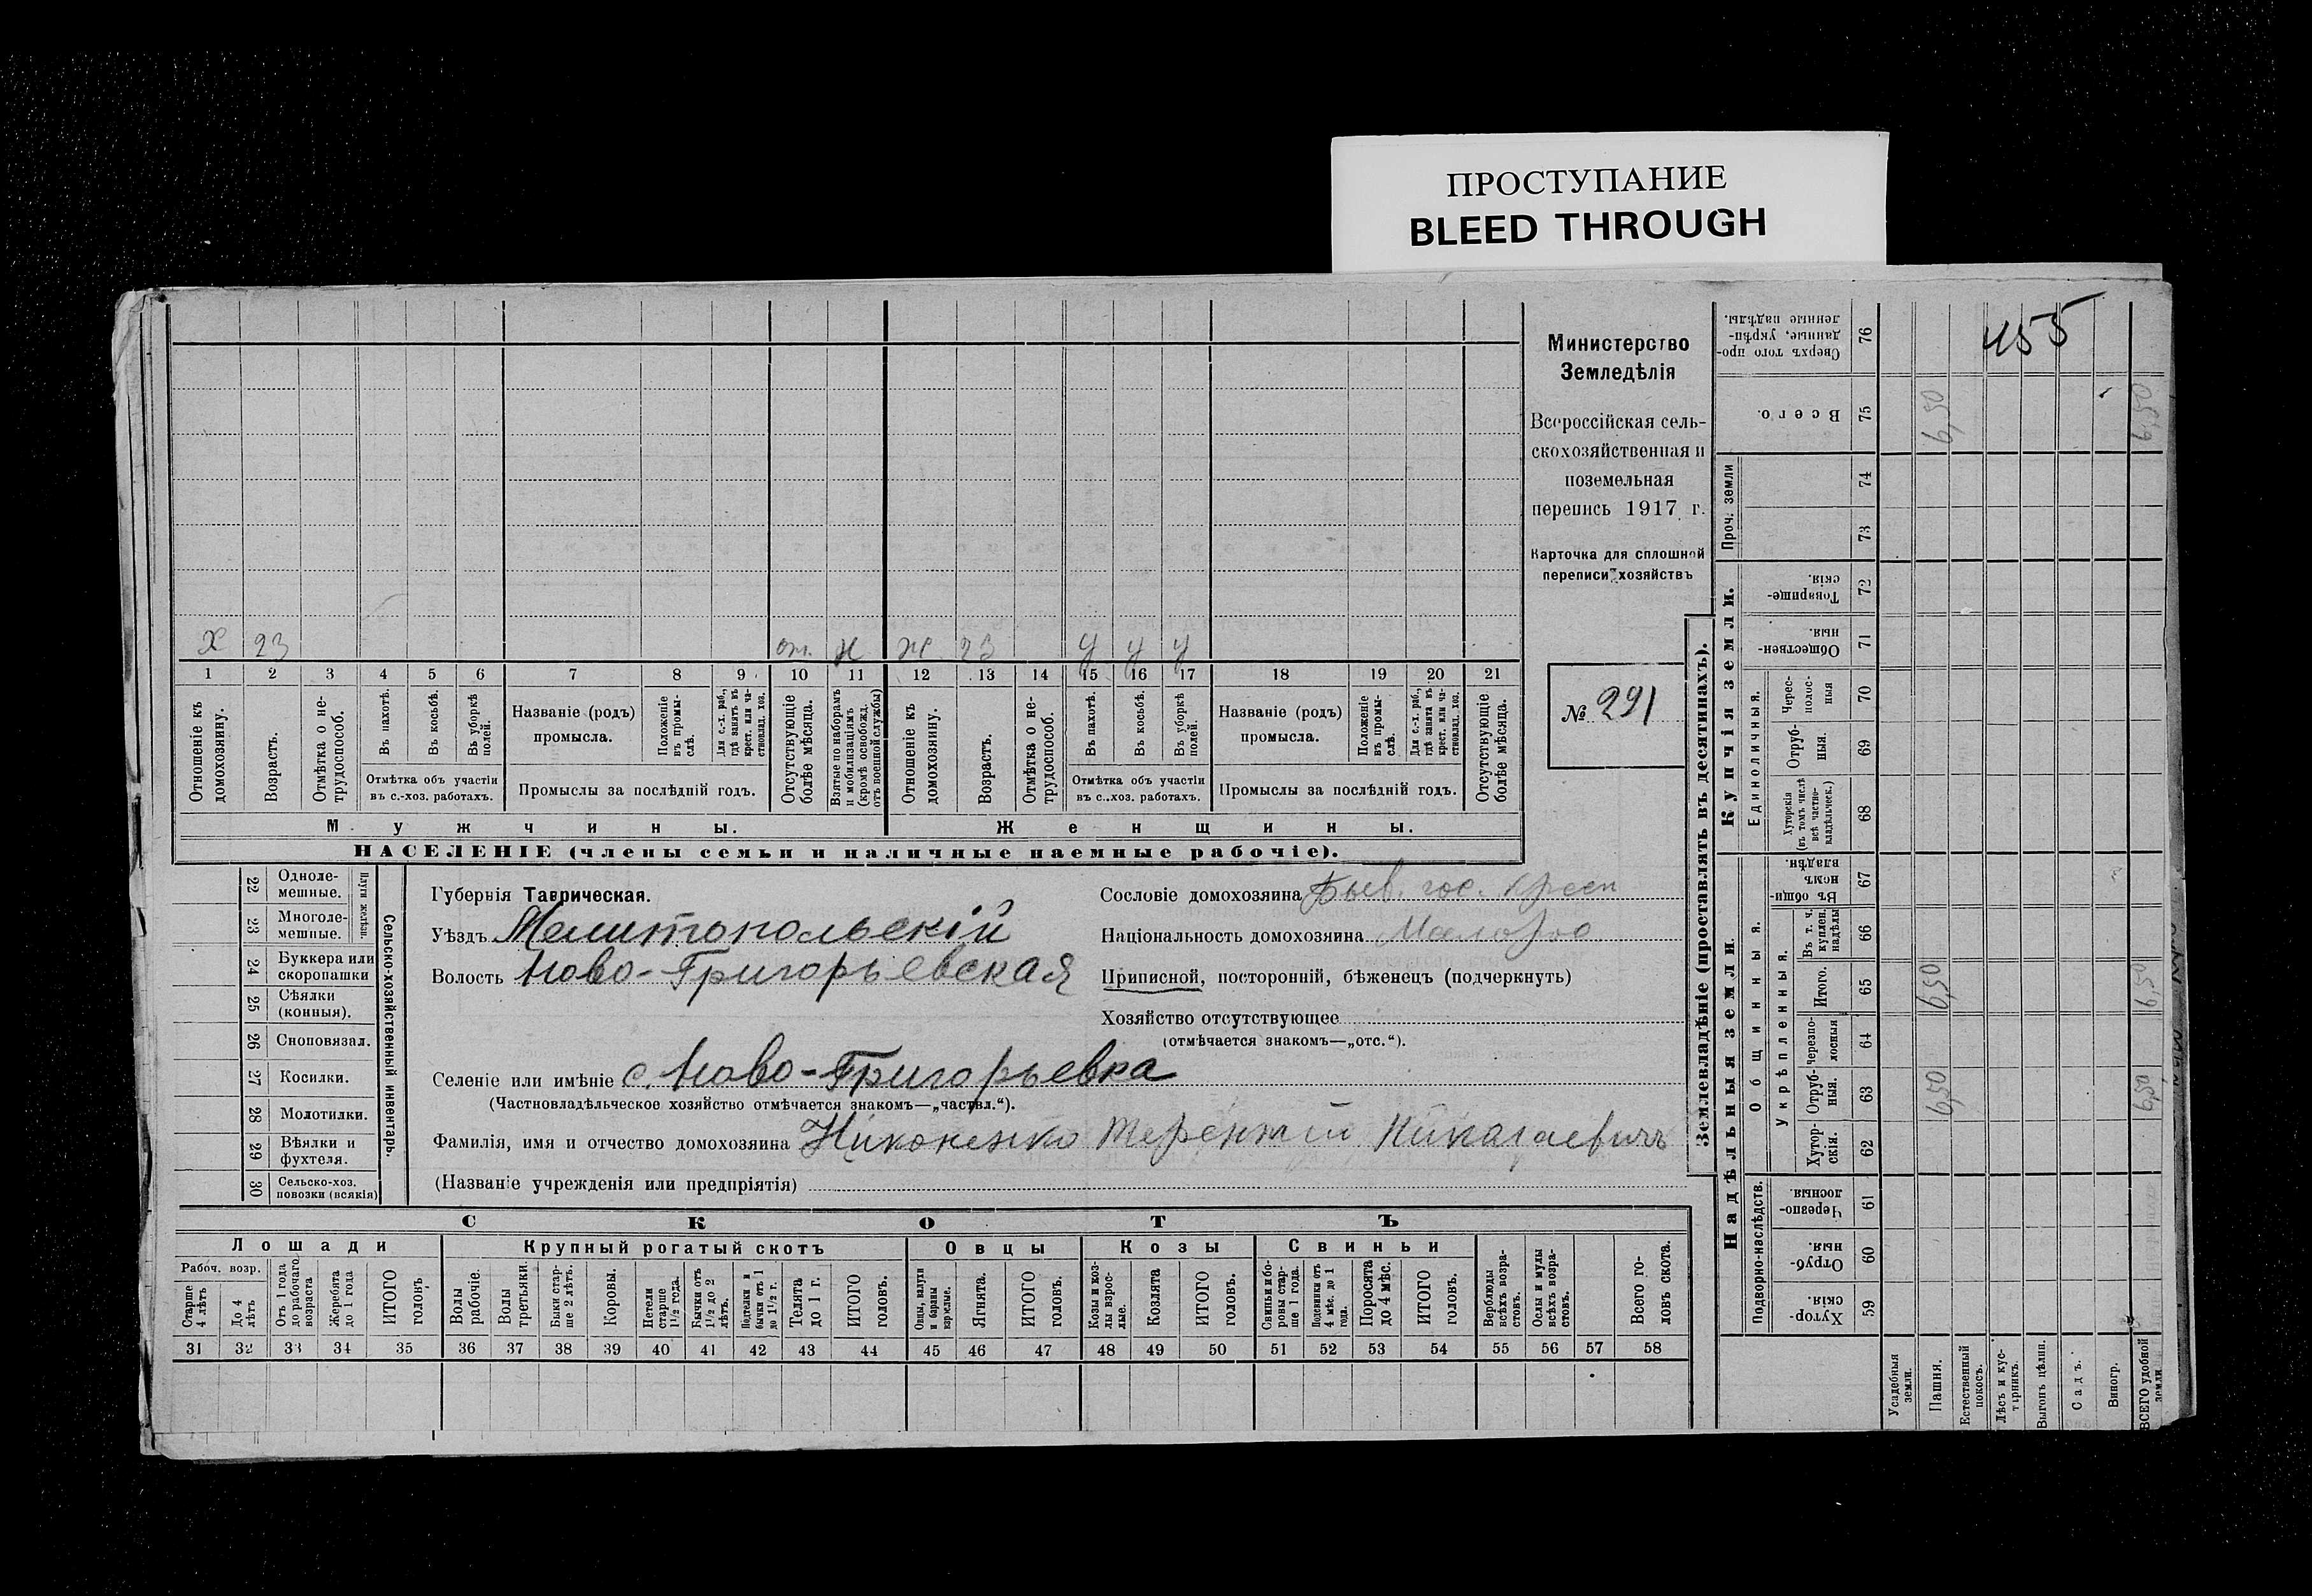 ПРОСТУПАНИЕ
BLEED THROUGH
455
Министерство
Земледѣлія
Всероссійская сель-
скохозяйственная и
поземельная
перепись 1917 г.
Карточка для сплошной
переписи хозяйствъ
№ 291
Х 23 от. Ж 23 у у у
1 2 3 4 5 6 7 8 9 10 11 12 13 14 15 16 17 18 19 20 21
Отношеніе къ домохозяину.
Возрастъ.
Отмѣтка о не-трудоспособ.
Въ пахотѣ.
Въ косьбѣ.
Въ уборкѣ полей.
Отмѣтка объ участіи
въ с.-хоз. работахъ.
Названіе (родъ)
промысла.
Положеніе въ промы-слѣ.
Для с.-х. раб., гдѣ занятъ въ крест. или ча-стновлад. хоз.
Промыслы за послѣдній годъ.
Отсутствующіе болѣе мѣсяца.
Взятые по наборамъ и мобилизаціямъ (кромѣ освобожд. отъ военной службы)
Отношеніе къ домохозяину.
Возрастъ.
Отмѣтка о не-трудоспособ.
Въ пахотѣ.
Въ косьбѣ.
Въ уборкѣ полей.
Отмѣтка объ участіи
въ с.-хоз. работахъ.
Названіе (родъ)
промысла.
Положеніе въ промы-слѣ.
Для с.-х. раб., гдѣ занята въ крест. или ча-стновлад. хоз.
Промыслы за послѣдній годъ.
Отсутствующіе болѣе мѣсяца.
Мужчины. Женщины.
НАСЕЛЕНІЕ (члены семьи и наличные наемные рабочіе).
Сельско-хозяйственный инвентарь.
Плуги желѣзн.
22 Одноле-мешные.
23 Многоле-мешные.
24 Буккера или скоропашки
25 Сѣялки (конныя).
26 Сноповязал.
27 Косилки.
28 Молотилки.
29 Вѣялки и фухтеля.
30 Сельско-хоз. повозки (всякія)
Губернія Таврическая.
Уѣздъ Мелитопольскій
Волость Ново-Григорьевская
Селеніе или имѣніе с. Ново-Григорьевка
(Частновладѣльческое хозяйство отмѣчается знакомъ—„частвл.“).
Фамилія, имя и отчество домохозяина Никоненко Терентій Николаевичъ
(Названіе учрежденія или предпріятія)
Сословіе домохозяина Быв. гос. крест
Національность домохозяина Малорос
Приписной, посторонній, бѣженецъ (подчеркнуть)
Хозяйство отсутствующее
(отмѣчается знакомъ—„отс.“).
СКОТЪ
Лошади
Рабоч. возр.
Старше 4 лѣтъ
До 4 лѣтъ
Отъ 1 года до рабочаго возраста
Жеребята до 1 года
ИТОГО головъ.
Крупный рогатый скотъ
Волы рабочіе.
Волы третьяки.
Быки стар-ше 2 лѣтъ.
Коровы.
Нетели старше 1½ года.
Бычки отъ 1½ до 2 лѣтъ.
Подтелки и бычки отъ 1 до 1½ г.
Телята до 1 г.
ИТОГО головъ.
Овцы
Овцы, валухи и бараны взрослые.
Ягнята.
ИТОГО головъ.
Козы
Козы и коз-лы взрос-лые.
Козлята
ИТОГО головъ.
Свиньи
Свиньи и бо-ровы стар-ше 1 года.
Подсвинки отъ 4 мѣс. до 1 года.
Поросята до 4 мѣс.
ИТОГО головъ.
Верблюды всѣхъ возра-стовъ.
Ослы и мулы всѣхъ возра-стовъ.
Всего го-ловъ скота.
31 32 33 34 35 36 37 38 39 40 41 42 43 44 45 46 47 48 49 50 51 52 53 54 55 56 57 58
Землевладѣніе (проставлять въ десятинахъ).
Надѣльныя земли.
Подворно-наслѣдств.
Хутор-скія. 59
Отруб-ныя 60
Черезпо-лосныя. 61
Общинныя.
Укрѣпленныя.
Хутор-скія. 62
Отруб-ныя. 63 6,50 6,50
Черезпо-лосныя 64
Итого. 65 6,50 6,50
Въ т. ч. куплен. надѣлы 66
Въ общи-номъ владѣн. 67
Купчія земли.
Единоличныя.
Хуторскія (въ томъ числѣ всѣ частно-владѣльческ.) 68
Отруб-ныя. 69
Черес-полос-ныя 70
Обществен-ныя. 71
Товарище-скія. 72
Проч. земли 73 74
Всего. 75 6,50 6,50
Сверхъ того про-данные, укрѣп-ленные надѣлы. 76
Усадебныя земли.
Пашня.
Естественный покосъ.
Лѣсъ и кус-тарникъ.
Выгонъ цѣлин.
Садъ.
Виногр.
ВСЕГО удобной земли